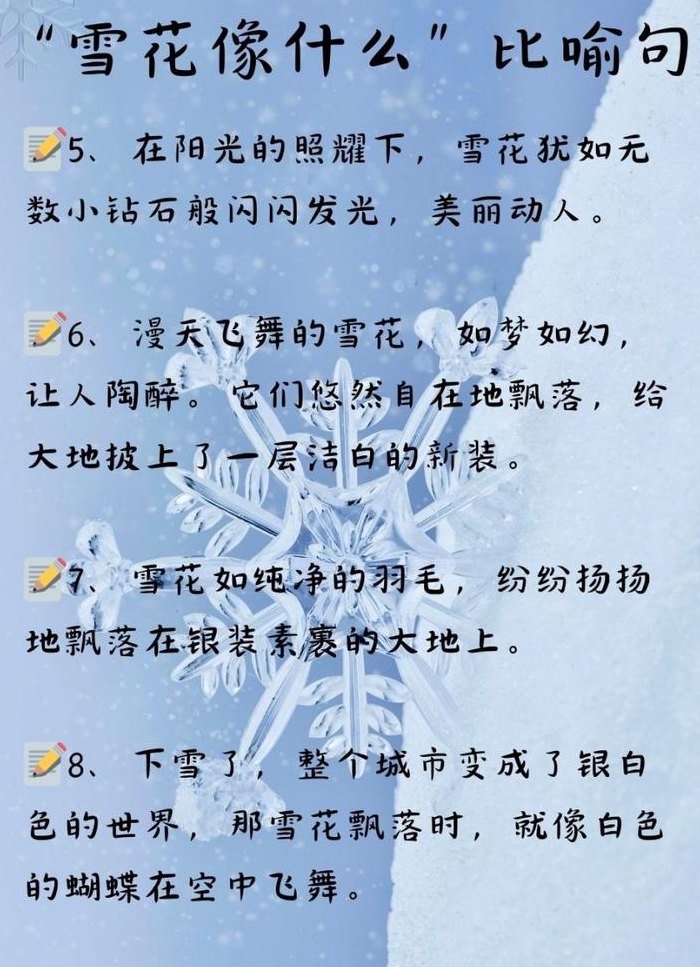 “雪花像什么”比喻句
5、在阳光的照耀下，雪花犹如无
数小钻石般闪闪发光，美丽动人。
6、漫天飞舞的雪花，如梦如幻，
让人陶醉。它们悠然自在地飘落，给
大地披上了一层洁白的新装。
7、雪花如纯净的羽毛，纷纷扬扬
地飘落在银装素裹的大地上。
8、下雪了，整个城市变成了银白
色的世界，那雪花飘落时，就像白色
的蝴蝶在空中飞舞。